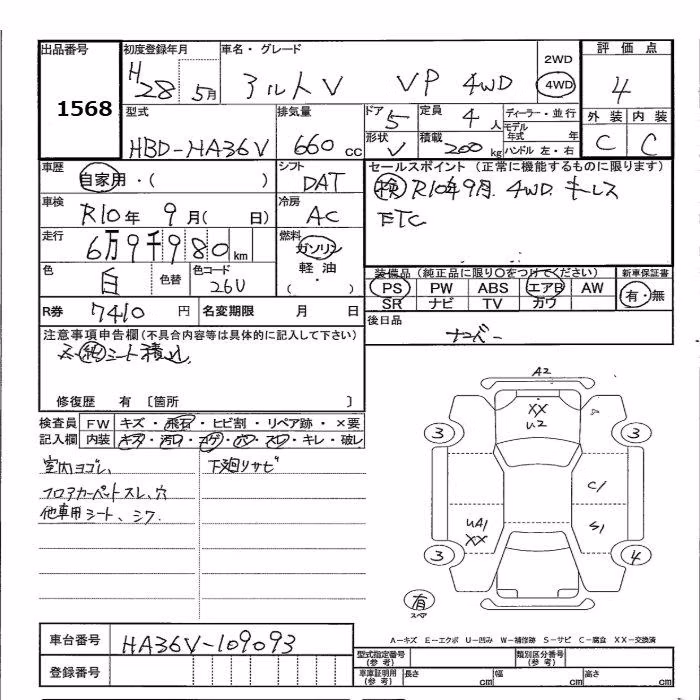 出品番号 1568
初度登録年月 H28 5月
車名・グレード アルトV VP 4WD
2WD
4WD
評価点 4
外装 内装
C C
型式 HBD-HA36V
排気量 660cc
ドア 5
形状 V
定員 4人
積載 200kg
ディーラー・並行
モデル年式 年
ハンドル 左・右
車歴 自家用・( )
シフト DAT
セールスポイント(正常に機能するものに限ります)
検R10年9月 4WD キーレス
ETC
車検 R10年 9月( 日)
冷房 AC
走行 6万9千980km
燃料 ガソリン
軽油
( ・ )
色 白
色替
色コード 26U
装備品(純正品に限り○をつけてください)
PS PW ABS エアB AW
SR ナビ TV カワ
新車保証書
有・無
R券 7410円
名変期限 月 日
後日品 ナンバー
注意事項申告欄(不具合内容等は具体的に記入して下さい)
シート積込
修復歴 有 〔箇所 〕
検査員記入欄
FW キズ・飛石・ヒビ割・リペア跡・×要
内装 キズ・汚れ・コゲ・穴・スレ・キレ・破レ
室内ヨゴレ、
下廻りサビ
フロアカーペットスレ、穴
他車用シート、シワ
A2
XX
U2
3 3
C1
UA1
XX
S1
3 4
有
スペア
A-キズ E-エクボ U-凹み W-補修跡 S-サビ C-腐食 XX-交換済
車台番号 HA36V-109093
登録番号
型式指定番号(参考)
類別区分番号(参考)
車庫証明用(参考) 長さ cm 幅 cm 高さ cm